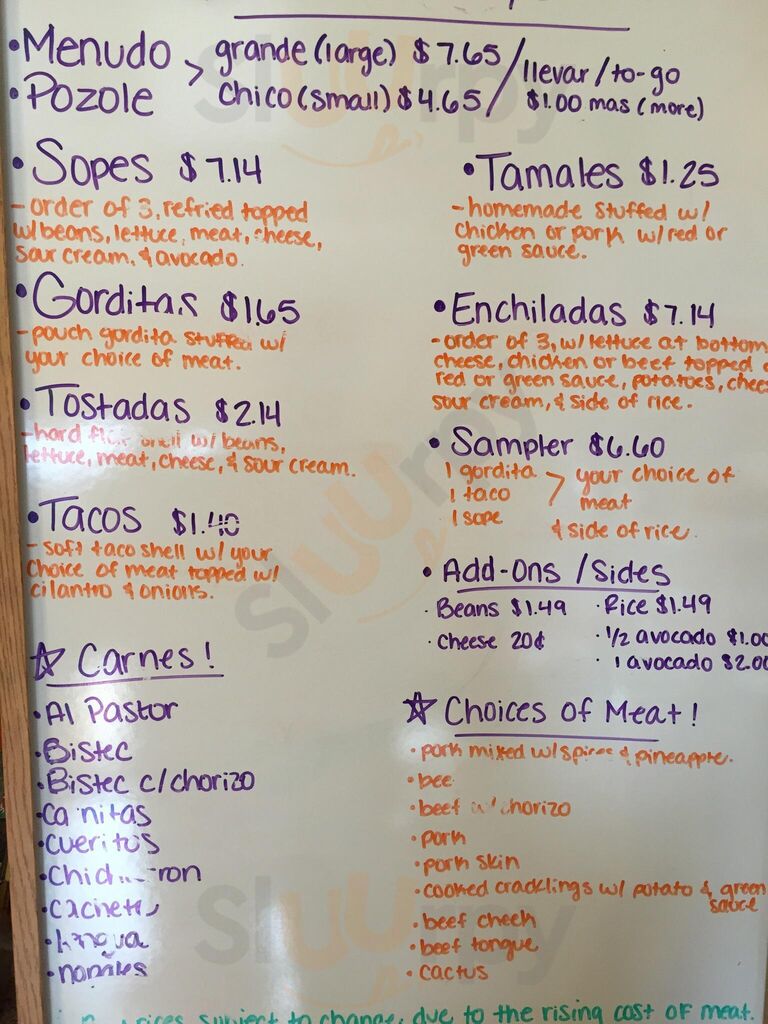 •Menudo > grande (large) $7.65 / llevar / to-go
•Pozole chico (small) $4.65 / $1.00 mas (more)
•Sopes $7.14
-order of 3, refried topped
w/beans, lettuce, meat, cheese,
sour cream, & avocado.
•Gorditas $1.65
-pouch gordita stuffed w/
your choice of meat.
•Tostadas $2.14
-hard shell w/ beans,
lettuce, meat, cheese, & sour cream.
•Tacos $1.40
-soft taco shell w/ your
choice of meat topped w/
cilantro & onions.
☆ Carnes!
•Al Pastor
•Bistec
•Bistec c/chorizo
•Carnitas
•cueritos
•chicharron
•cachete
•lengua
•nopales
•Tamales $1.25
-homemade stuffed w/
chicken or pork w/red or
green sauce.
•Enchiladas $7.14
-order of 3, w/ lettuce at bottom
cheese, chicken or beef topped
red or green sauce, potatoes, chees
sour cream, & side of rice.
•Sampler $6.60
1 gordita > your choice of
1 taco meat
1 sope & side of rice.
•Add-Ons / Sides
•Beans $1.49 •Rice $1.49
•Cheese 20¢ •1/2 avocado $1.00
•1 avocado $2.00
☆ Choices of Meat!
•pork mixed w/spices & pineapple.
•bee
•beef w/chorizo
•pork
•pork skin
•cooked cracklings w/ potato & green
sauce
•beef cheek
•beef tongue
•cactus
prices subject to change, due to the rising cost of meat.
sluurpy
sluurpy
sluurpy